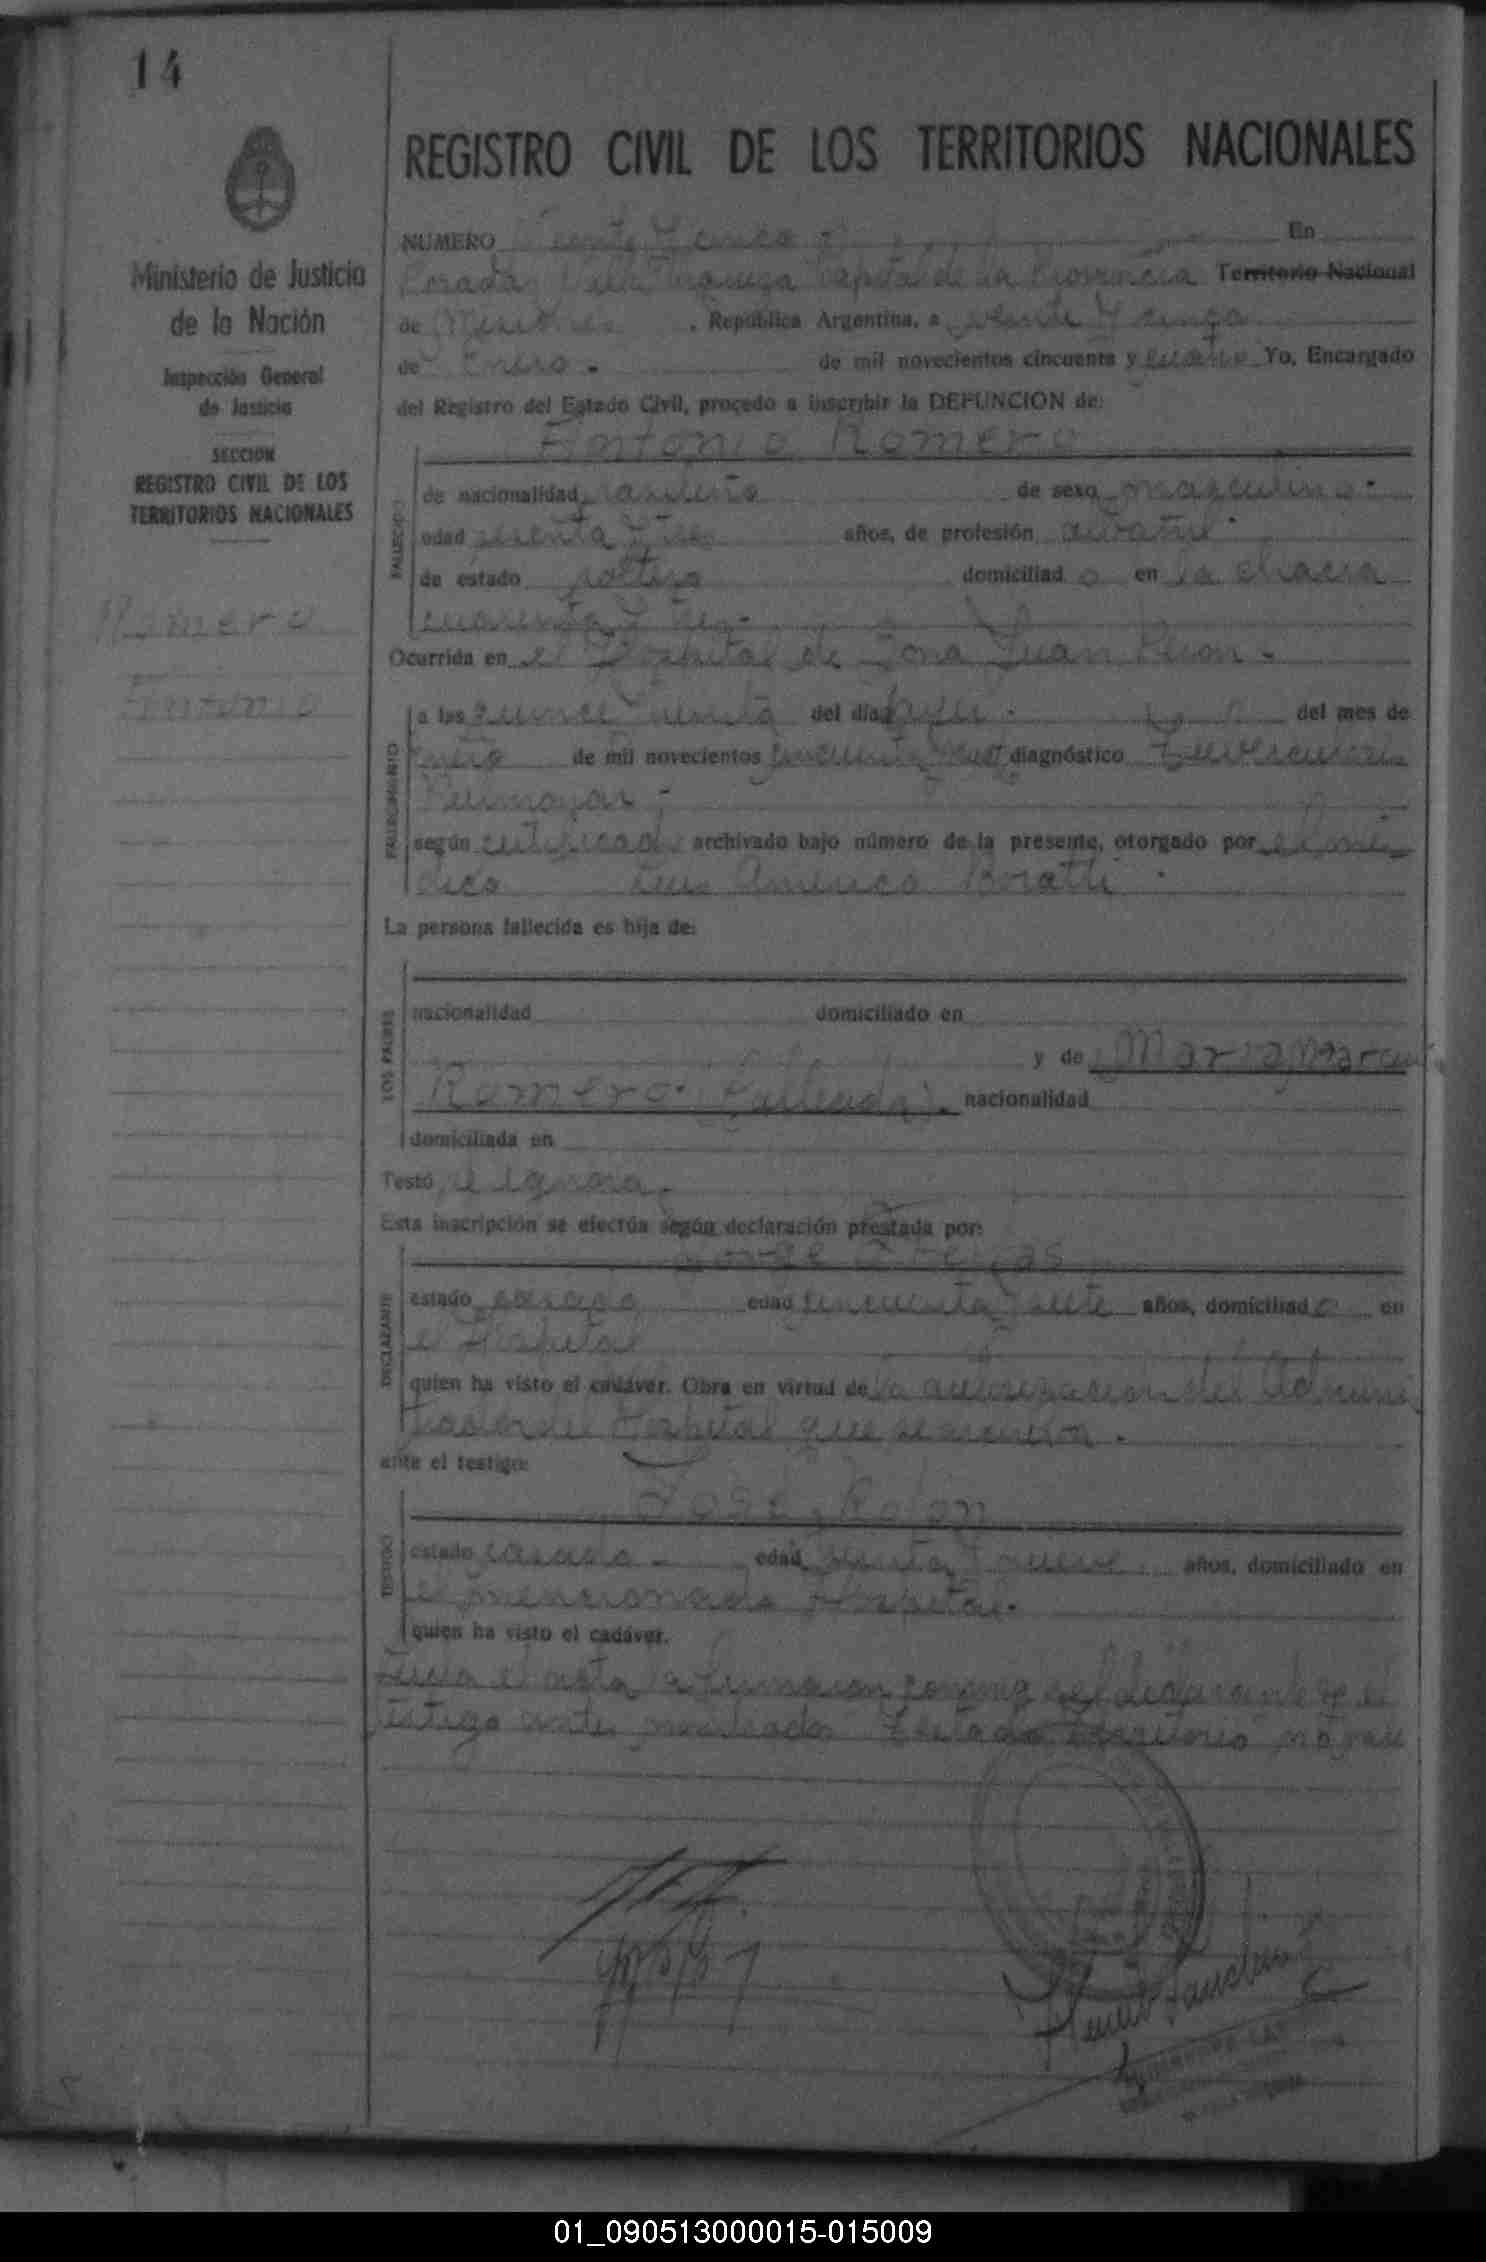 14
REGISTRO CIVIL DE LOS TERRITORIOS NACIONALES
Ministerio de Justicia
de la Nación
Inspección General
de Justicia
SECCION
REGISTRO CIVIL DE LOS
TERRITORIOS NACIONALES
Romero
Antonio
NUMERO Veinte y cinco En
Posadas Capital de la Provincia Territorio Nacional
de Misiones, República Argentina, a veinte y cinco
de Enero. de mil novecientos cincuenta y Yo, Encargado
del Registro del Estado Civil, procedo a inscribir la DEFUNCION de:
Antonio Romero
FALLECIDO
de nacionalidad de sexo masculino.
edad años, de profesión
de estado soltero domiciliado en la chacra
cuarenta y tres.
Ocurrida en el Hospital de Zona Juan Peron.
FALLECIMIENTO
a las quince treinta del dia del mes de
enero de mil novecientos cincuenta diagnóstico Tuberculosis
Pulmonar
según certificado archivado bajo número de la presente, otorgado por el mé
dico Luis Americo
La persona fallecida es hija de:
LOS PADRES
nacionalidad domiciliado en
y de Maria
Romero. (fallecida). nacionalidad
domiciliada en
Testó se ignora.
Esta inscripción se efectúa según declaración prestada por:
Jorge
DECLARANTE
estado casado edad cincuenta y siete años, domiciliado en
el Hospital
quien ha visto el cadáver. Obra en virtud de la autorizacion del Adminis
trador del Hospital que se archiva.
ante el testigo:
José
TESTIGO
estado casado edad treinta y nueve años, domiciliado en
el mencionado Hospital.
quien ha visto el cadáver.
Leida el acta la firmaron conmigo el declarante y el
testigo antes mencionados. Testado: Territorio no vale
01_090513000015-015009